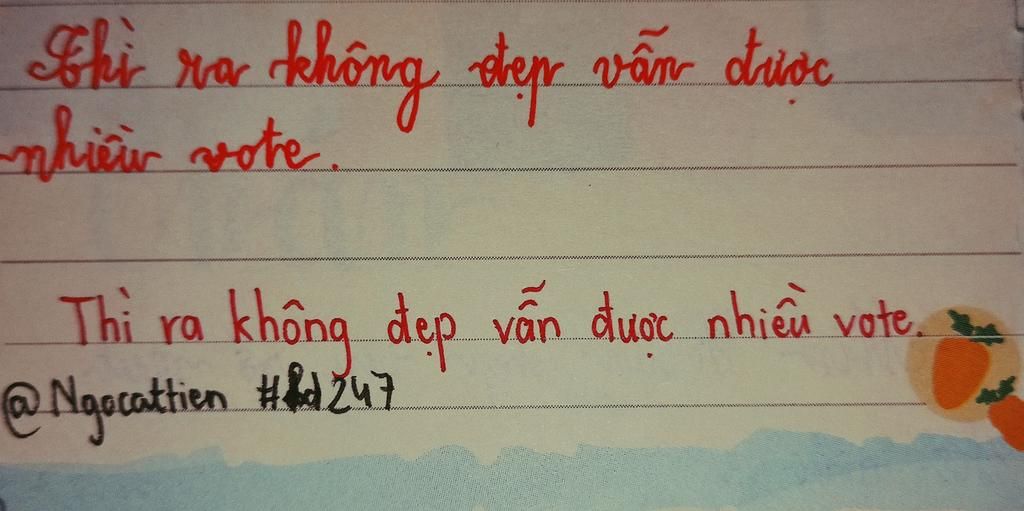 Thì ra không đẹp vẫn được
nhiều vote.
Thì ra không đẹp vẫn được nhiều vote.
@Ngocattien #hd247